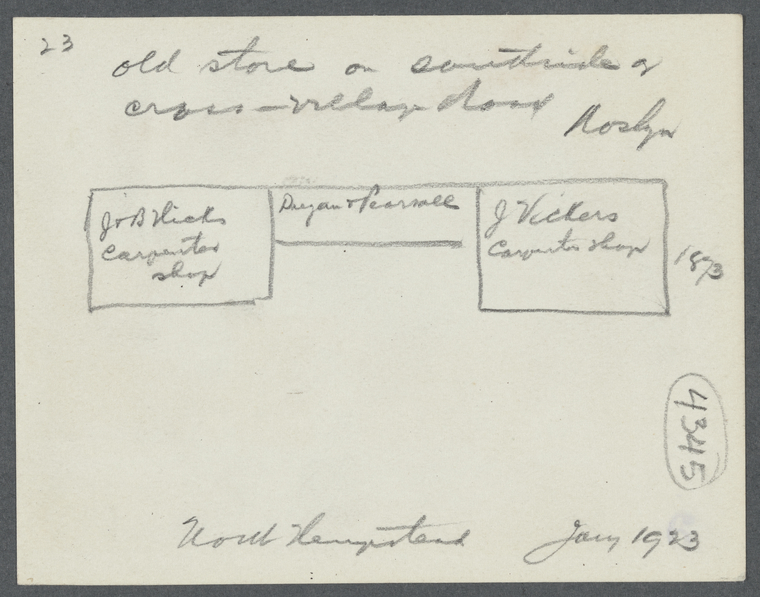 23
old store on southside of
cross-village Road
Roslyn
J & B Hicks
Carpenter
shop
Duryan & Pearsall
J Vickers
Carpenter shop
1873
4345
North Hempstead
Jany 1923